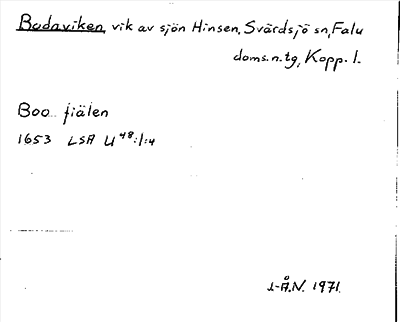 Bodaviken, vik av sjön Hinsen, Svärdsjö sn, Falu
doms.n.tg, Kopp. l.
Boo.. fiälen
1653 LSA U 48:1:4
L-Å.N. 1971.